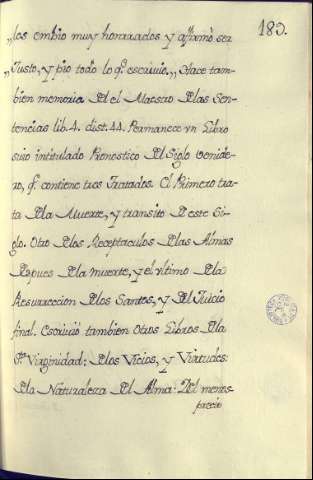 183.
„los embio muy honrarados y affirmò ser
„Justo, y pio todo lo q̃. escriuio„. Hace tam-
bien memoria del el Maestro de las Sen-
tencias lib. 4. dist. 44. Permanece vn Libro
suio intitulado Pronostico del Siglo venide-
ro, q̃. contiene tres Tratados. El Primero tra-
ta de la Muerte, y transito de este Si-
glo. Otro de los Receptaculos de las Almas
despues de la muerte, y el vltimo de la
Resurreccion de los Santos, y del Juicio
final. Escriuiò tambien otros Libros de la
Virginidad: de los Vicios, y Virtudes:
de la Naturaleza del Alma: del menos-
precio